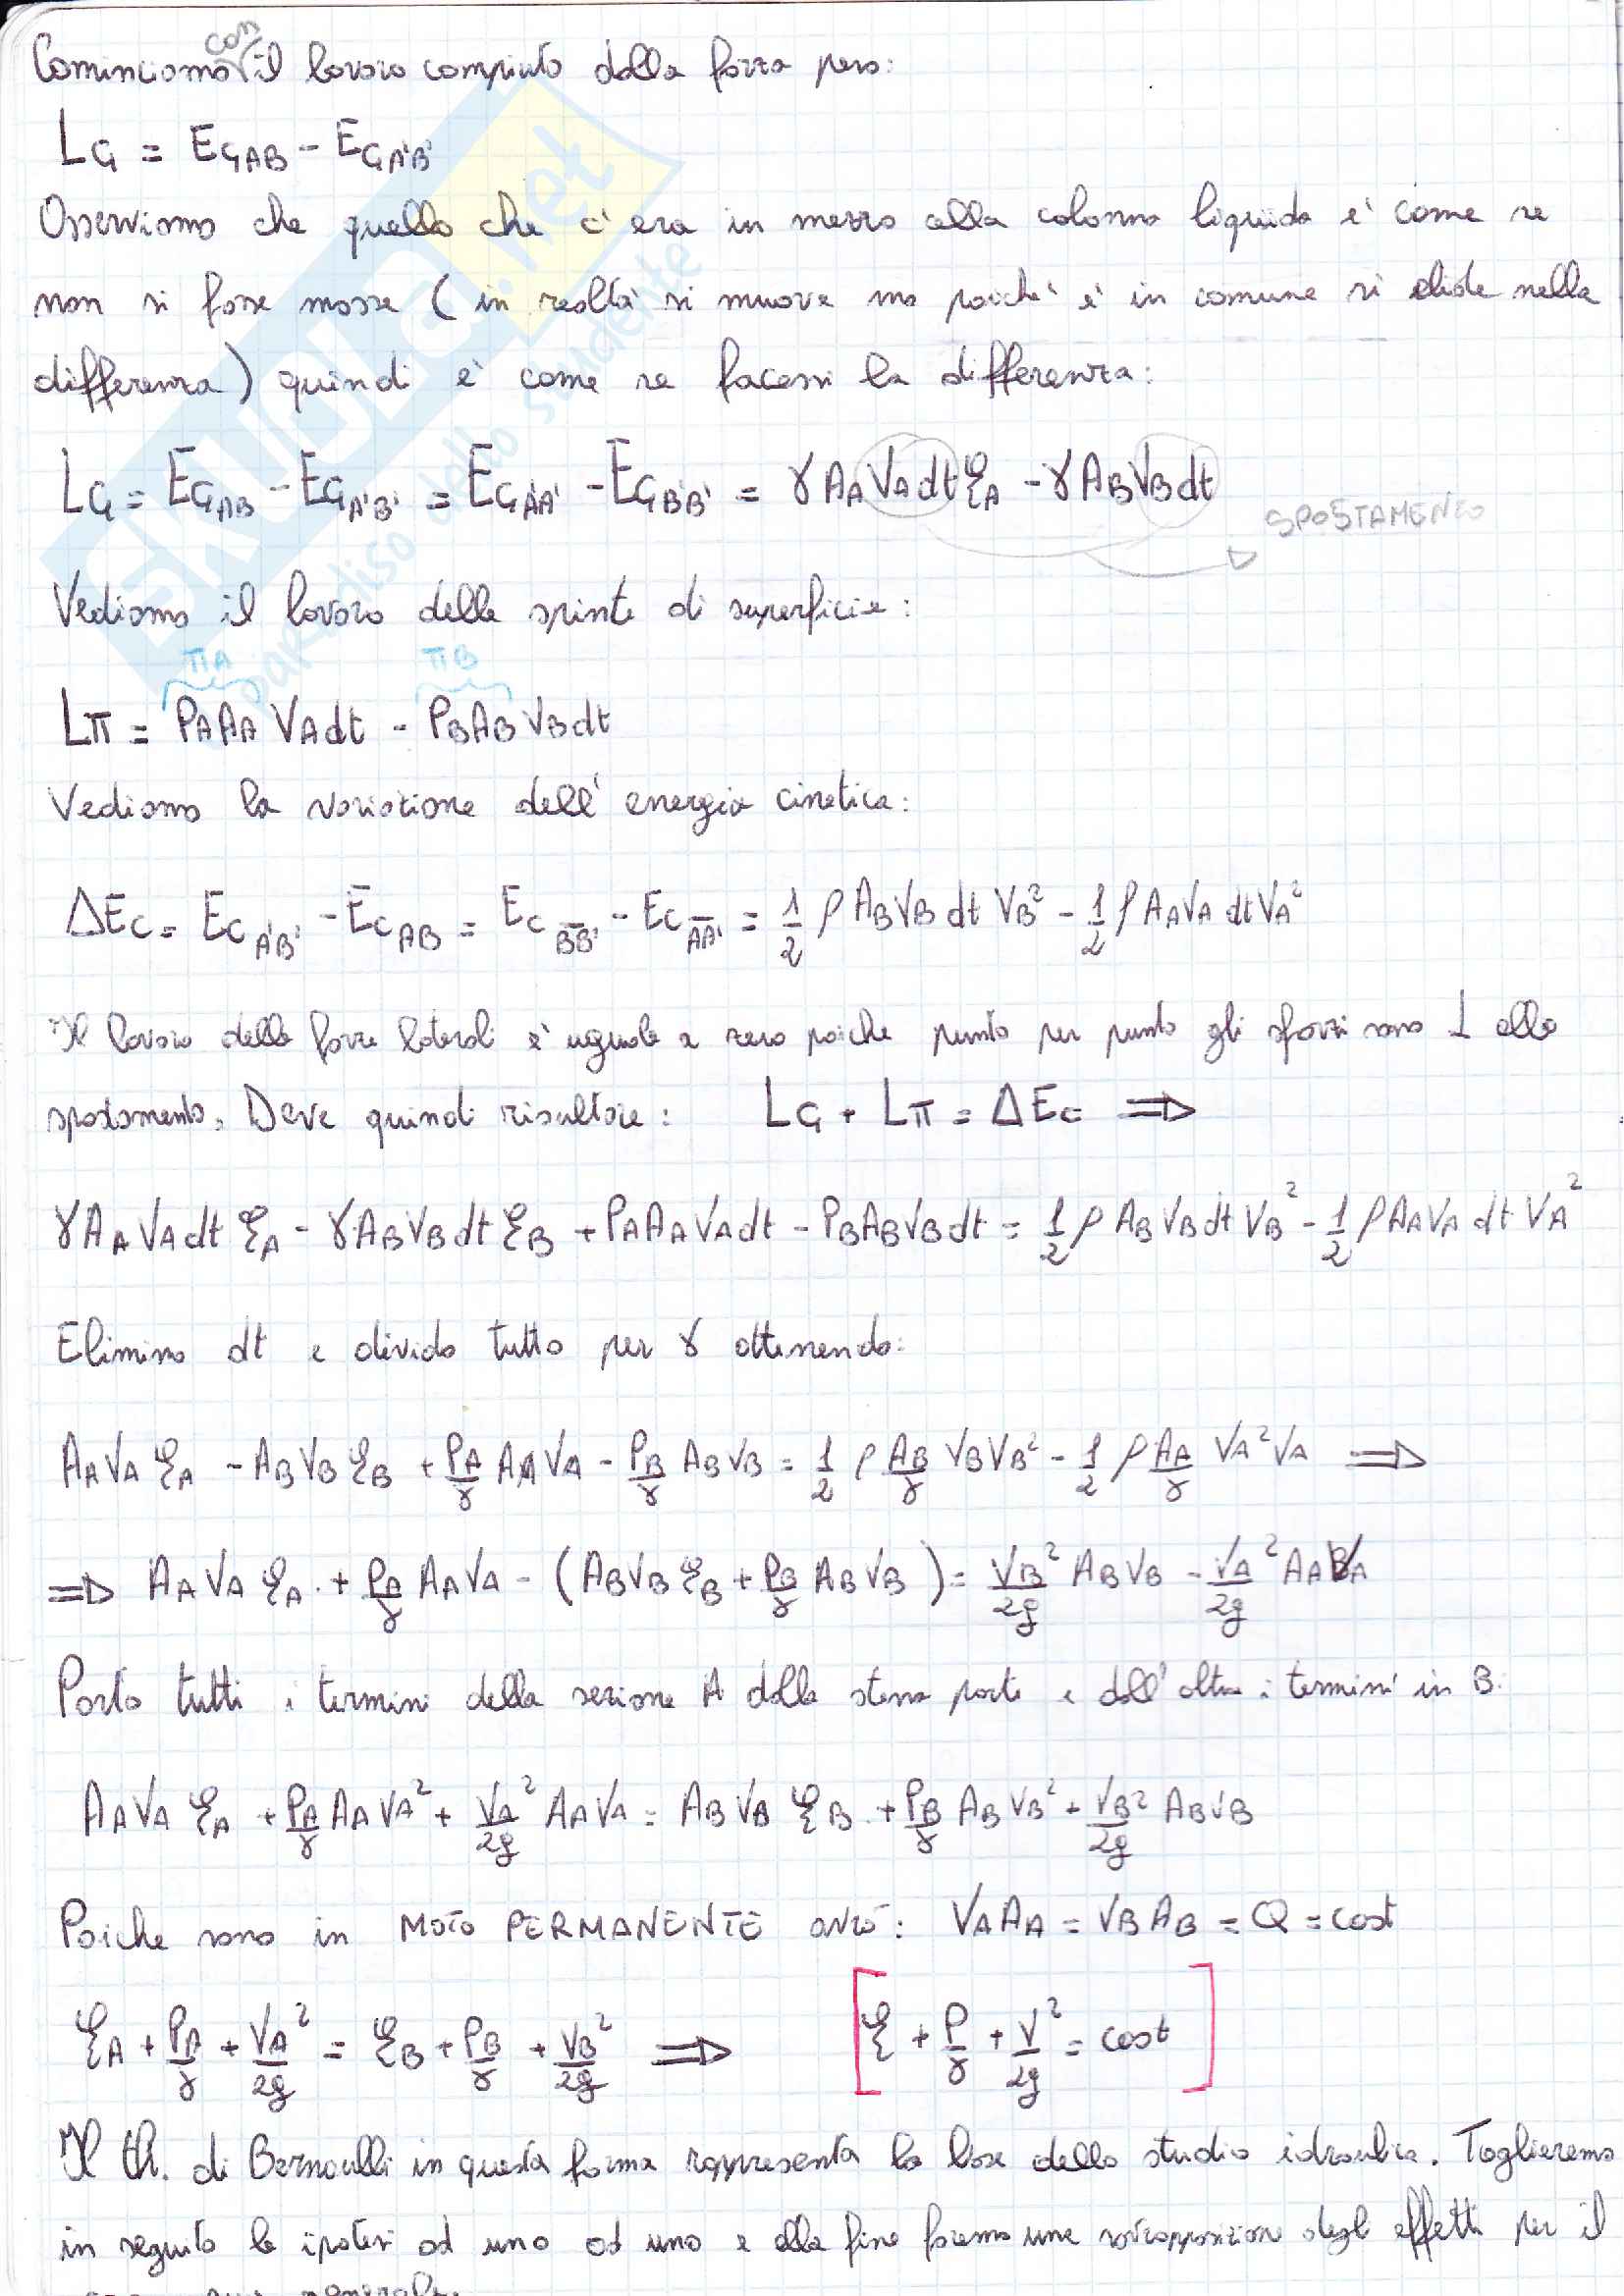 Cominciamo con il lavoro compiuto dalla forza peso:
LG = EGAB - EGA'B'
Osserviamo che quello che c'era in mezzo alla colonna liquida è come se
non si fosse mosse (in realtà si muove ma poiché è in comune si elide nella
differenza) quindi è come se facessi la differenza:
LG = EGAB - EGA'B' = EGAA' - EGBB' = γAAVAdtξA - γABVBdt
SPOSTAMENTO
Vediamo il lavoro delle spinte di superficie:
πA πB
Lπ = PAAA VAdt - PBAB VBdt
Vediamo la variazione dell'energia cinetica:
ΔEC = EC A'B' - EC AB = EC BB' - EC AA' = 1/2 ρ ABVB dt VB² - 1/2 ρ AAVA dt VA²
Il lavoro delle forze laterali è uguale a zero poiche punto per punto gli sforzi sono ⊥ allo
spostamento. Deve quindi risultare: LG + Lπ = ΔEC ⇒
γAAVAdt ξA - γABVBdt ξB + PAAAVAdt - PBABVBdt = 1/2 ρ ABVBdt VB² - 1/2 ρ AAVA dt VA²
Elimino dt e divido tutto per γ ottenendo:
AAVA ξA - ABVB ξB + PA/γ AAVA - PB/γ ABVB = 1/2 ρ AB/γ VBVB² - 1/2 ρ AA/γ VA²VA ⇒
⇒ AAVA ξA + PA/γ AAVA - (ABVB ξB + PB/γ ABVB) = VB²/2g ABVB - VA²/2g AAVA
Porto tutti i termini della sezione A dalla stessa parte e dall'altra i termini in B:
AAVA ξA + PA/γ AAVA² + VA²/2g AAVA = ABVB ξB + PB/γ ABVB² + VB²/2g ABVB
Poiche sono in MOTO PERMANENTE avrò: VAAA = VBAB = Q = cost
ξA + PA/γ + VA²/2g = ξB + PB/γ + VB²/2g ⇒ [ξ + P/γ + V²/2g = cost]
Il th. di Bernoulli in questa forma rappresenta la base dello studio idraulica. Toglieremo
in seguito le ipotesi ad uno ad uno e alla fine faremo una sovrapposizione degli effetti per il
SKUOLA.net
paradiso dello studente